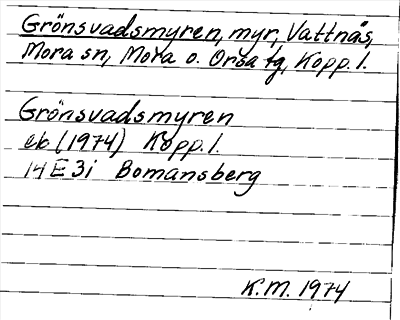 Grönsvadsmyren, myr, Vattnäs,
Mora sn, Mora o. Orsa tg, Kopp. l.
Grönsvadsmyren
eb (1974) Kopp. l.
14 E 3i Bomansberg
K.M. 1974